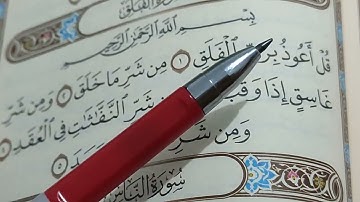 سُورَةُ الفَلَقِ
بِسْمِ اللَّهِ الرَّحْمَٰنِ الرَّحِيمِ
قُلْ أَعُوذُ بِرَ الْفَلَقِ ١ مِن شَرِّ مَا خَلَقَ ٢ وَمِن شَرِّ
غَاسِقٍ إِذَا وَقَبَ شَرِّ النَّفَّٰثَٰتِ فِي الْعُقَدِ ٤
وَمِن شَرِّ
سُورَةُ النَّاسِ